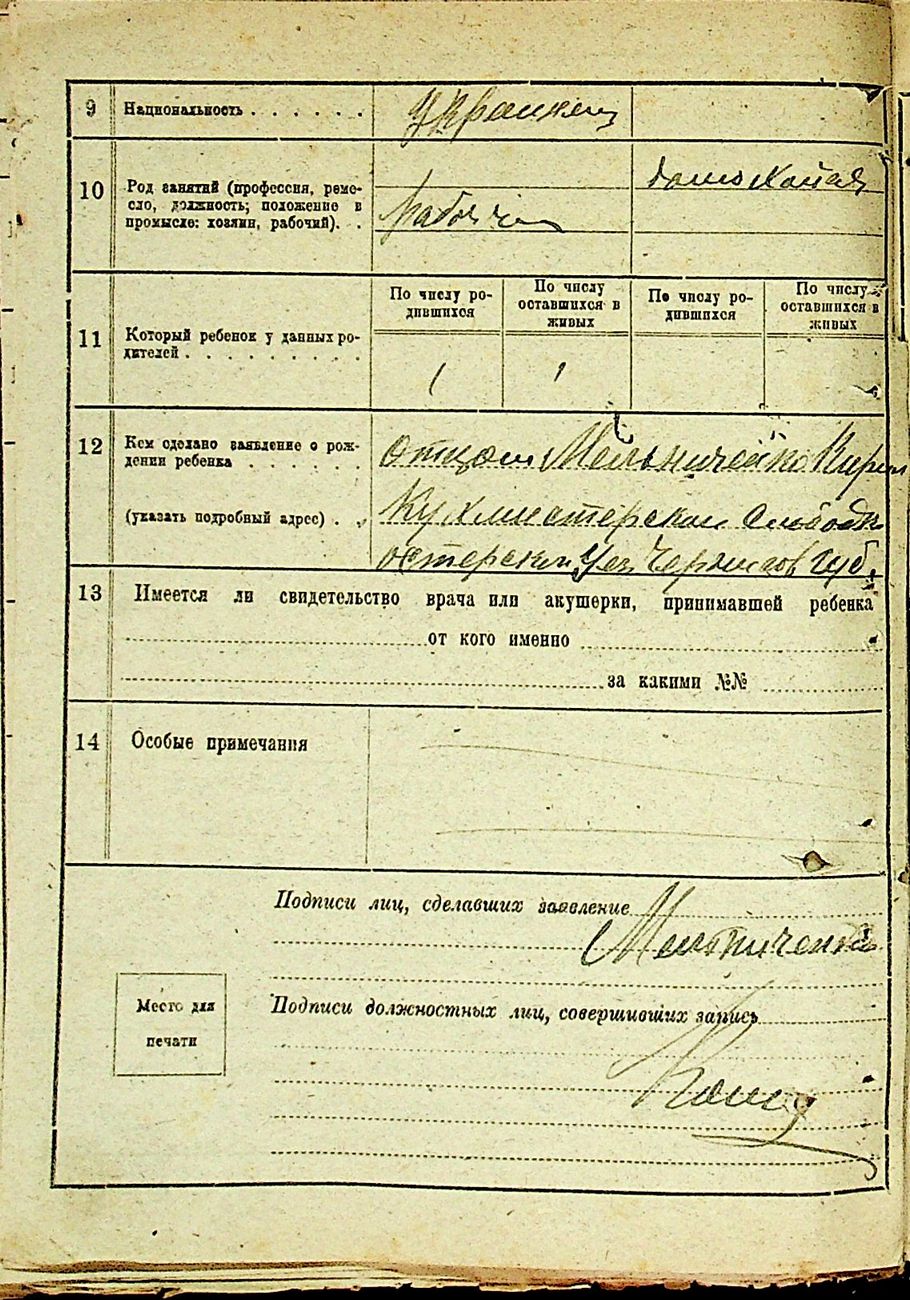 9 Национальность . . . . . . Украинец
10 Род занятий (профессия, реме-
сло, должность; положение в
промысле: хозяин, рабочий). .
рабочий
11 Который ребенок у данных ро-
дителей . . . . . . . . .
По числу ро-
дившихся
По числу
оставшихся в
живых
По числу ро-
дившихся
По числу
оставшихся в
живых
1 1
12 Кем сделано заявление о рож-
дении ребенка . . . . . .
(указать подробный адрес) . .
отцом Мельниченко Кирил
Кухмистерской Слободк
остерский уез Чернигов губ.
13 Имеется ли свидетельство врача или акушерки, принимавшей ребенка
от кого именно
за какими №№
14 Особые примечания
Подписи лиц, сделавших заявление
Мельниченко
Подписи должностных лиц, совершивших запись
Место для
печати